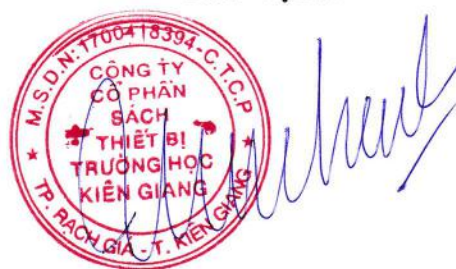 M.S.D.N: 1700418394-C.T.C.P
CÔNG TY
CỔ PHẦN
SÁCH
THIẾT BỊ
TRƯỜNG HỌC
KIÊN GIANG
TP. RẠCH GIÁ - T. KIÊN GIANG